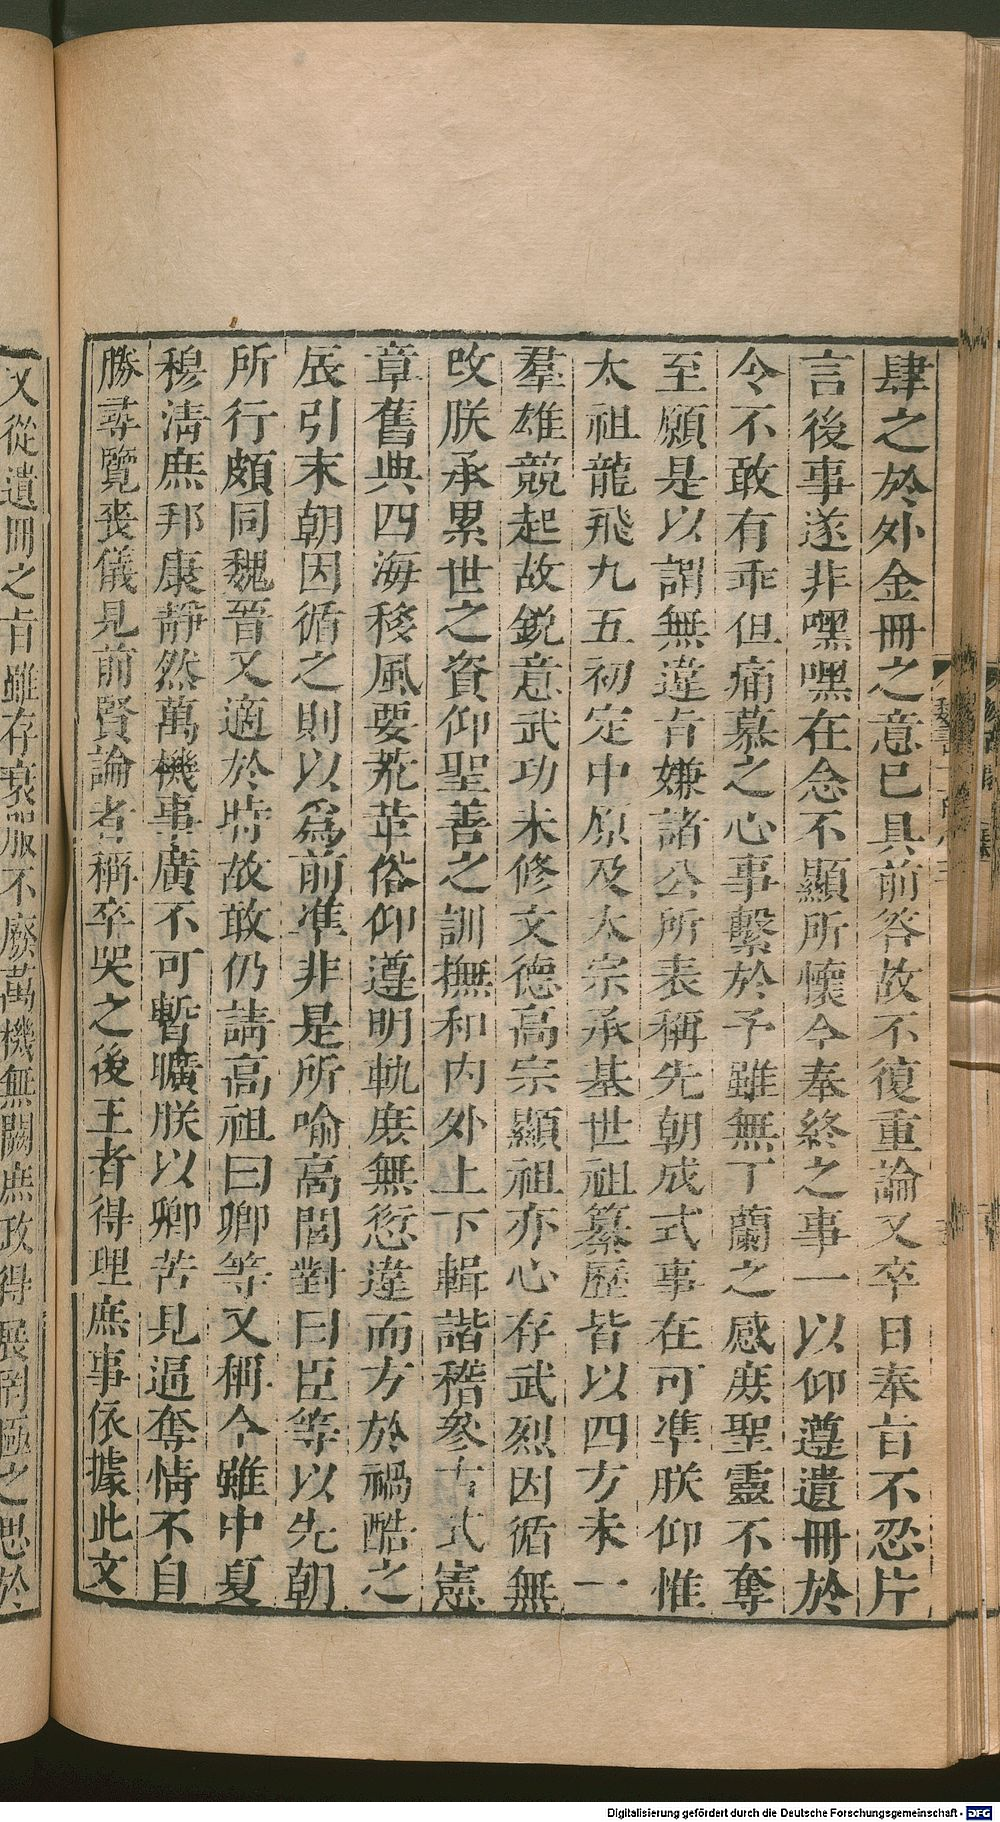 肆之於外金冊之意已具前答故不復重論又卒日奉旨不忍片
言後事遂非嘿嘿在念不顯所懷今奉終之事一以仰遵遺冊於
令不敢有乖但痛慕之心事繫於予雖無丁蘭之感庶聖靈不奪
至願是以謂無違旨嫌諸公所表稱先朝成式事在可準朕仰惟
太祖龍飛九五初定中原及太宗承基世祖纂歷皆以四方未一
羣雄競起故銳意武功未修文德高宗顯祖亦心存武烈因循無
改朕承累世之資仰聖善之訓撫和內外上下輯諧稽參古式憲
章舊典四海移風要荒革俗仰遵明軌庶無愆違而方於禍酷之
辰引末朝因循之則以為前準非是所喻高閭對曰臣等以先朝
所行頗同魏晉又適於時故敢仍請高祖曰卿等又稱今雖中夏
穆淸庶邦康靜然萬機事廣不可暫曠朕以卿苦見逼奪情不自
勝尋覽喪儀見前賢論者稱卒哭之後王者得理庶事依據此文
又從遺冊之旨雖存衰服不廢萬機無闕庶政得展罔極之思於
Digitalisierung gefördert durch die Deutsche Forschungsgemeinschaft - DFG